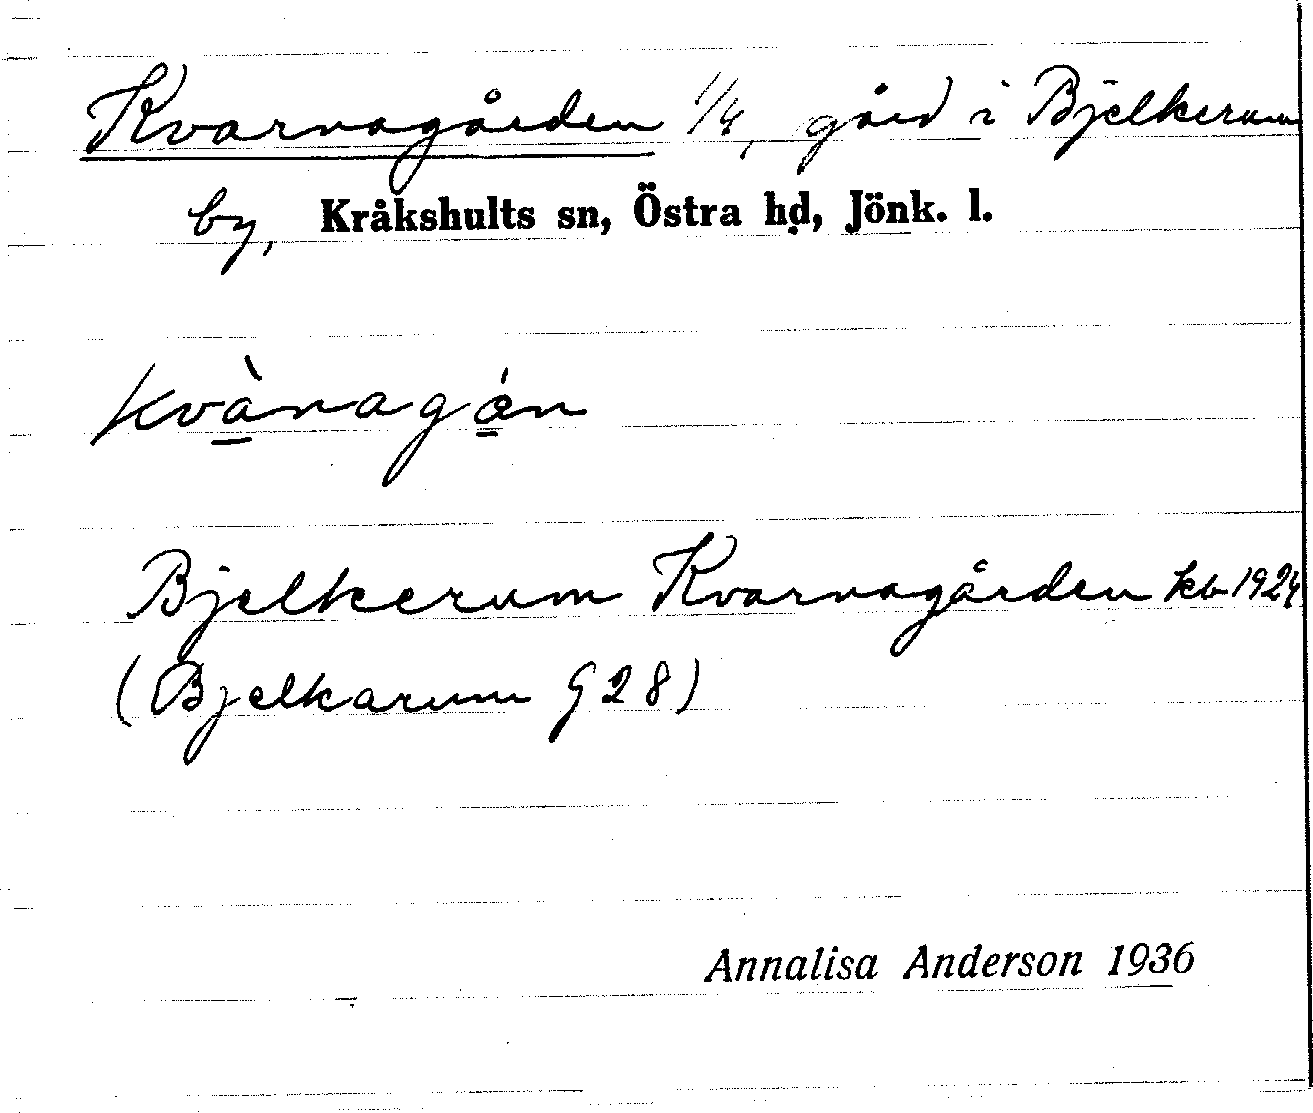 Kvarnagården 1/4, gård i Bjelkerum
by, Kråkshults sn, Östra hd, Jönk. l.
kvànagón
Bjelkerum Kvarnagården kb 1924
(Bjelkarum G 28)
Annalisa Anderson 1936